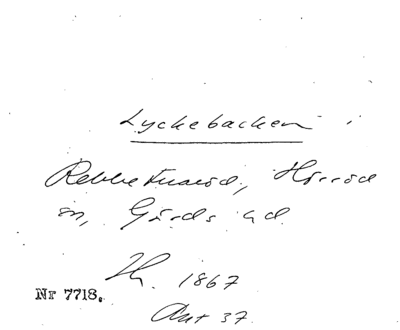 Lyckebacken
Rebbetuaröd, Hörröd
sn, Gärds hd.
Th. 1867
Nr 7718.
Ant 37.